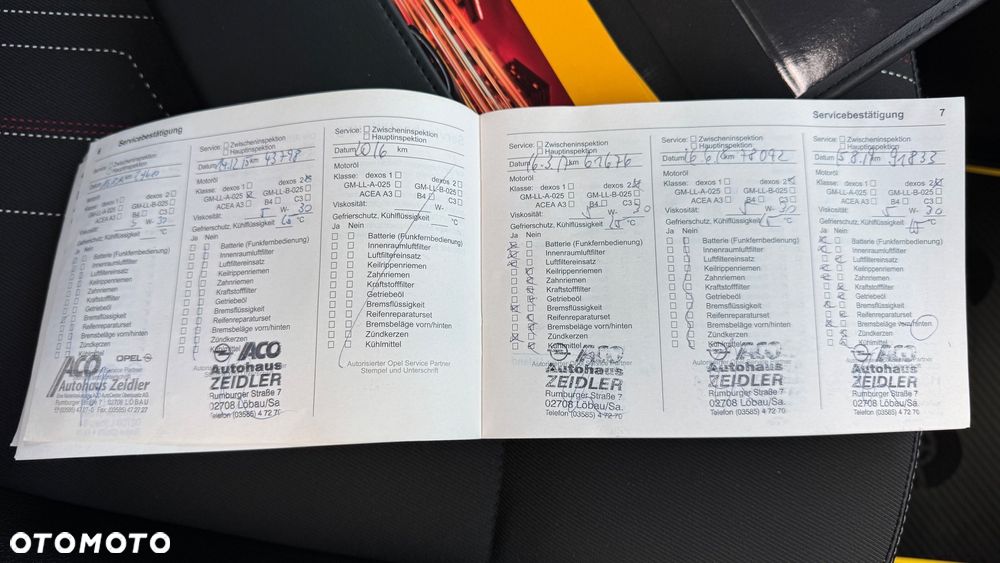 Servicebestätigung
Service: Zwischeninspektion
Hauptinspektion
Datum km
Motoröl
Klasse: dexos 1 dexos 2
GM-LL-A-025 GM-LL-B-025
ACEA A3 B4 C3
Viskosität: 5 W- 30
Gefrierschutz, Kühlflüssigkeit °C
ACO OPEL
Autohaus Zeidler
Rumburger Straße 7
02708 LÖBAU
Service: Zwischeninspektion
Hauptinspektion
Datum km 43798
Motoröl
Klasse: dexos 1 dexos 2
GM-LL-A-025 GM-LL-B-025
ACEA A3 B4 C3
Viskosität: 5 W- 30
Gefrierschutz, Kühlflüssigkeit °C
Ja Nein
Batterie (Funkfernbedienung)
Innenraumluftfilter
Luftfiltereinsatz
Keilrippenriemen
Zahnriemen
Kraftstofffilter
Getriebeöl
Bremsflüssigkeit
Reifenreparaturset
Bremsbeläge vorn/hinten
Zündkerzen
Kühlmittel
ACO
Autohaus
ZEIDLER
Rumburger Straße 7
02708 Löbau/Sa.
Telefon (03585) 4 72 70
Service: Zwischeninspektion
Hauptinspektion
Datum 2016 km
Motoröl
Klasse: dexos 1 dexos 2
GM-LL-A-025 GM-LL-B-025
ACEA A3 B4 C3
Viskosität: W-
Gefrierschutz, Kühlflüssigkeit °C
Ja Nein
Batterie (Funkfernbedienung)
Innenraumluftfilter
Luftfiltereinsatz
Keilrippenriemen
Zahnriemen
Kraftstofffilter
Getriebeöl
Bremsflüssigkeit
Reifenreparaturset
Bremsbeläge vorn/hinten
Zündkerzen
Kühlmittel
Autorisierter Opel Service Partner
Stempel und Unterschrift
Servicebestätigung 7
Service: Zwischeninspektion
Hauptinspektion
Datum 16.3.17 km 61676
Motoröl
Klasse: dexos 1 dexos 2
GM-LL-A-025 GM-LL-B-025
ACEA A3 B4 C3
Viskosität: 5 W- 30
Gefrierschutz, Kühlflüssigkeit °C
Ja Nein
Batterie (Funkfernbedienung)
Innenraumluftfilter
Luftfiltereinsatz
Keilrippenriemen
Zahnriemen
Kraftstofffilter
Getriebeöl
Bremsflüssigkeit
Reifenreparaturset
Bremsbeläge vorn/hinten
Zündkerzen
Kühlmittel
ACO
Autohaus
ZEIDLER
Rumburger Straße 7
02708 Löbau/Sa.
Telefon (03585) 4 72 70
Service: Zwischeninspektion
Hauptinspektion
Datum km 78092
Motoröl
Klasse: dexos 1 dexos 2
GM-LL-A-025 GM-LL-B-025
ACEA A3 B4 C3
Viskosität: 5 W- 30
Gefrierschutz, Kühlflüssigkeit °C
Ja Nein
Batterie (Funkfernbedienung)
Innenraumluftfilter
Luftfiltereinsatz
Keilrippenriemen
Zahnriemen
Kraftstofffilter
Getriebeöl
Bremsflüssigkeit
Reifenreparaturset
Bremsbeläge vorn/hinten
Zündkerzen
Kühlmittel
ACO
Autohaus
ZEIDLER
Rumburger Straße 7
02708 Löbau/Sa.
Telefon (03585) 4 72 70
Service: Zwischeninspektion
Hauptinspektion
Datum km 91833
Motoröl
Klasse: dexos 1 dexos 2
GM-LL-A-025 GM-LL-B-025
ACEA A3 B4 C3
Viskosität: 5 W- 30
Gefrierschutz, Kühlflüssigkeit °C
Ja Nein
Batterie (Funkfernbedienung)
Innenraumluftfilter
Luftfiltereinsatz
Keilrippenriemen
Zahnriemen
Kraftstofffilter
Getriebeöl
Bremsflüssigkeit
Reifenreparaturset
Bremsbeläge vorn/hinten
Zündkerzen
Kühlmittel
ACO
Autohaus
ZEIDLER
Rumburger Straße 7
02708 Löbau/Sa.
Telefon (03585) 4 72 70
OTOMOTO